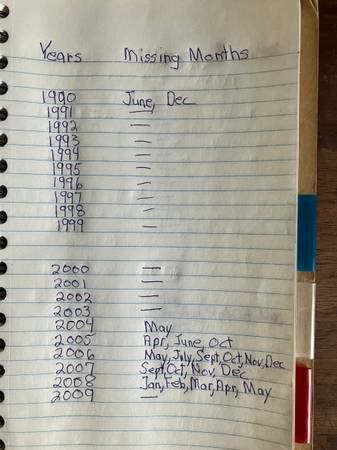 Years Missing Months
1990 June, Dec
1991 —
1992 —
1993 —
1994 —
1995 —
1996 —
1997 —
1998 —
1999 —
2000 —
2001 —
2002 —
2003 —
2004 May
2005 Apr, June, Oct
2006 May, July, Sept, Oct, Nov, Dec
2007 Sept, Oct, Nov, Dec
2008 Jan, Feb, Mar, Apr, May
2009 —